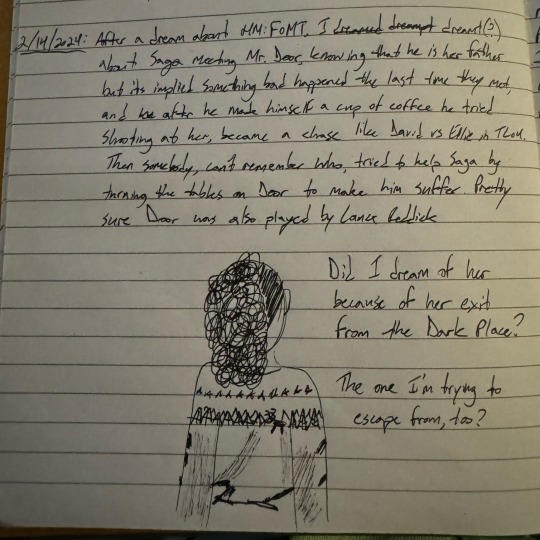 2/14/2024: After a dream about HM:FOMT, I dreamed dreampt dreamt(?)
about Saga meeting Mr. Door, knowing that he is her father
but its implied something bad happened the last time they met,
and after he made himself a cup of coffee he tried
shooting at her, became a chase like David vs Ellie in TLOU.
Then somebody, can't remember who, tried to help Saga by
turning the tables on Door to make him suffer. Pretty
sure Door was also played by Lance Reddick
Did I dream of her
because of her exit
from the Dark Place?
The one I'm trying to
escape from, too?